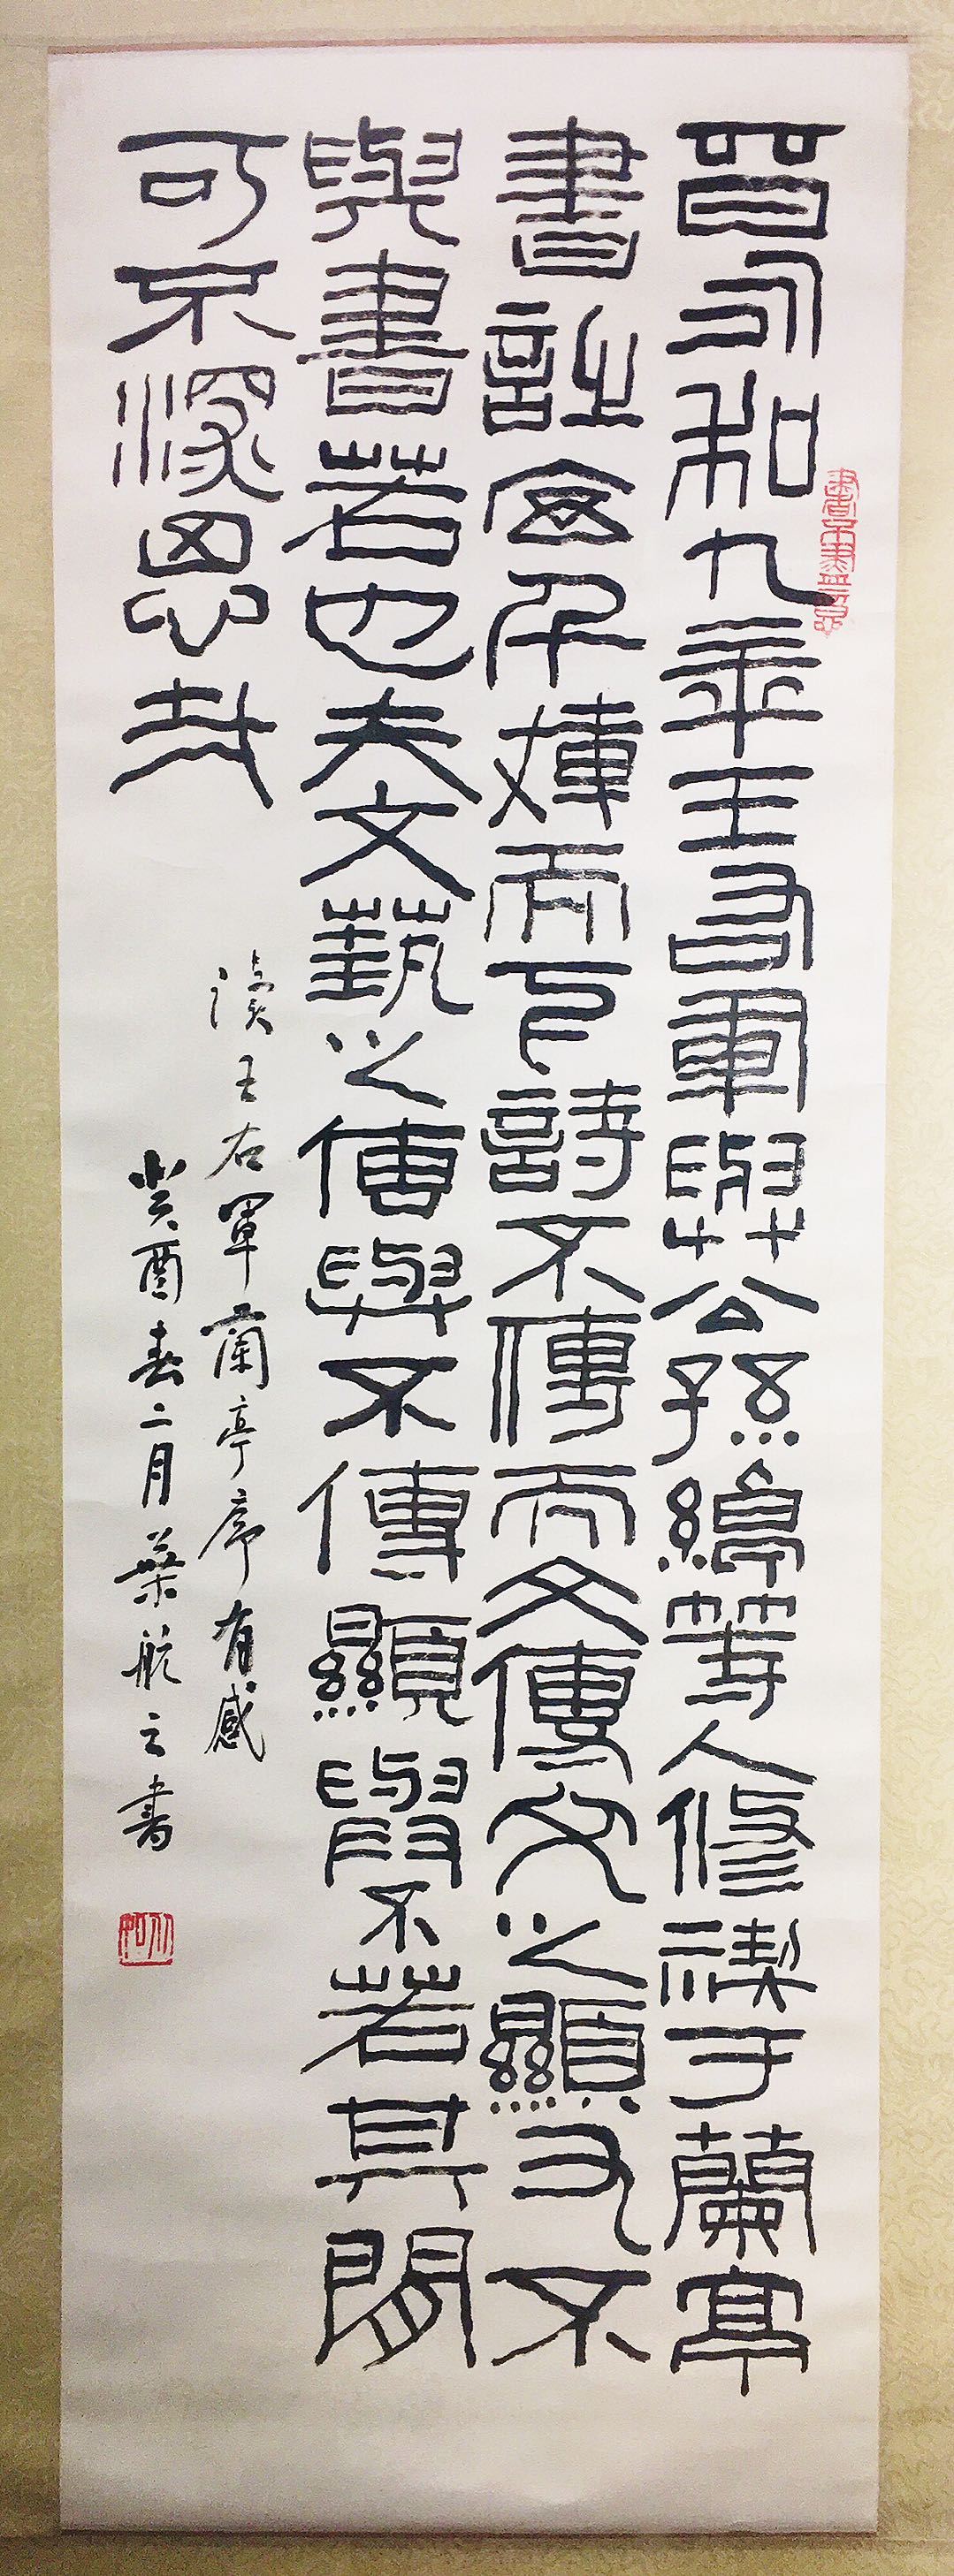 晉永和九年王右軍與公孫綽等人修禊于蘭亭
書而已詩不傳而文傳文之顯又不
與書若也夫文藝之傳與不傳顯與不若其間
可不深思哉
讀王右軍蘭亭序有感
癸酉春二月葉航之書